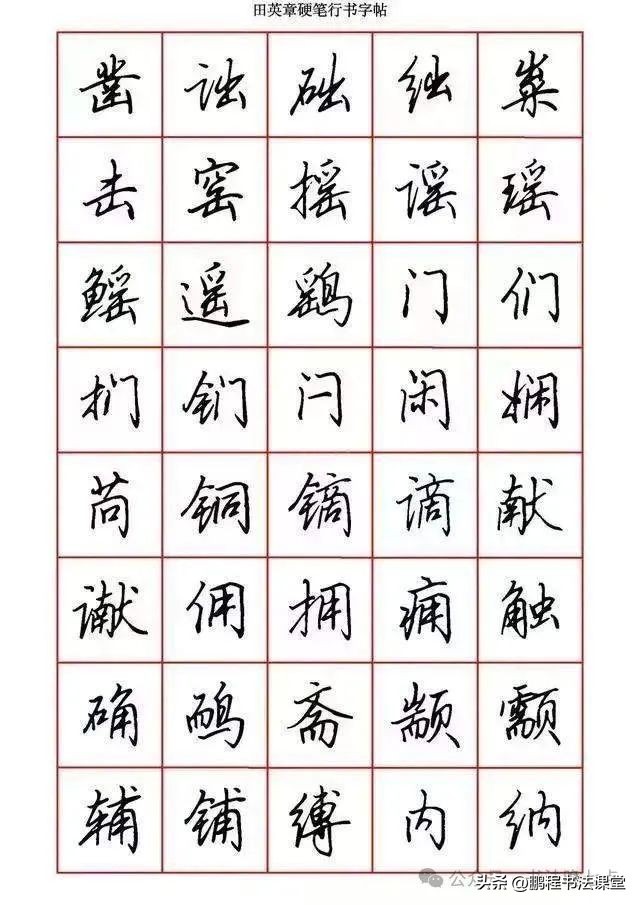 田英章硬笔行书字帖
凿 诎 础 绌 粜
击 窑 摇 谣 瑶
鳐 遥 鹞 门 们
扪 钔 闩 闲 娴
苘 铜 镝 谪 献
谳 佣 拥 痈 触
确 鸸 斋 颛 颥
辅 铺 缚 内 纳
公众号
头条@鹏程书法课堂